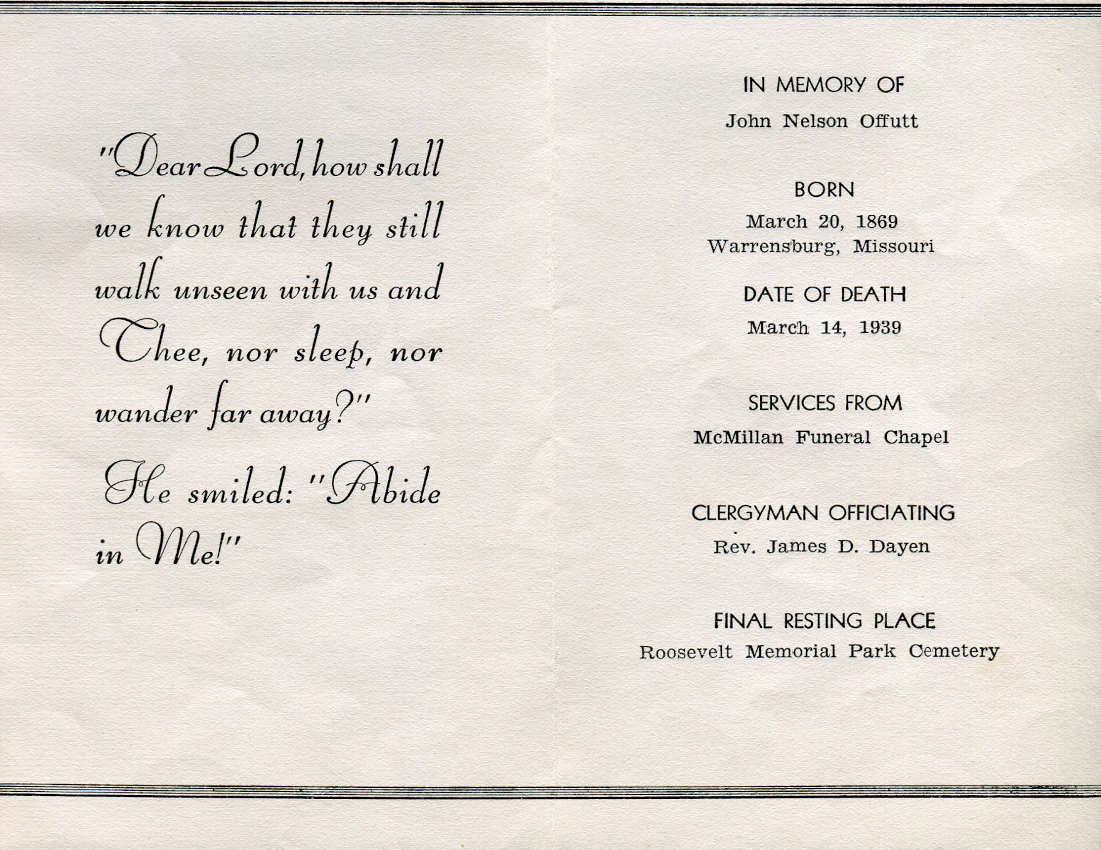 "Dear Lord, how shall
we know that they still
walk unseen with us and
Thee, nor sleep, nor
wander far away?"
He smiled: "Abide
in Me!"
IN MEMORY OF
John Nelson Offutt
BORN
March 20, 1869
Warrensburg, Missouri
DATE OF DEATH
March 14, 1939
SERVICES FROM
McMillan Funeral Chapel
CLERGYMAN OFFICIATING
Rev. James D. Dayen
FINAL RESTING PLACE
Roosevelt Memorial Park Cemetery